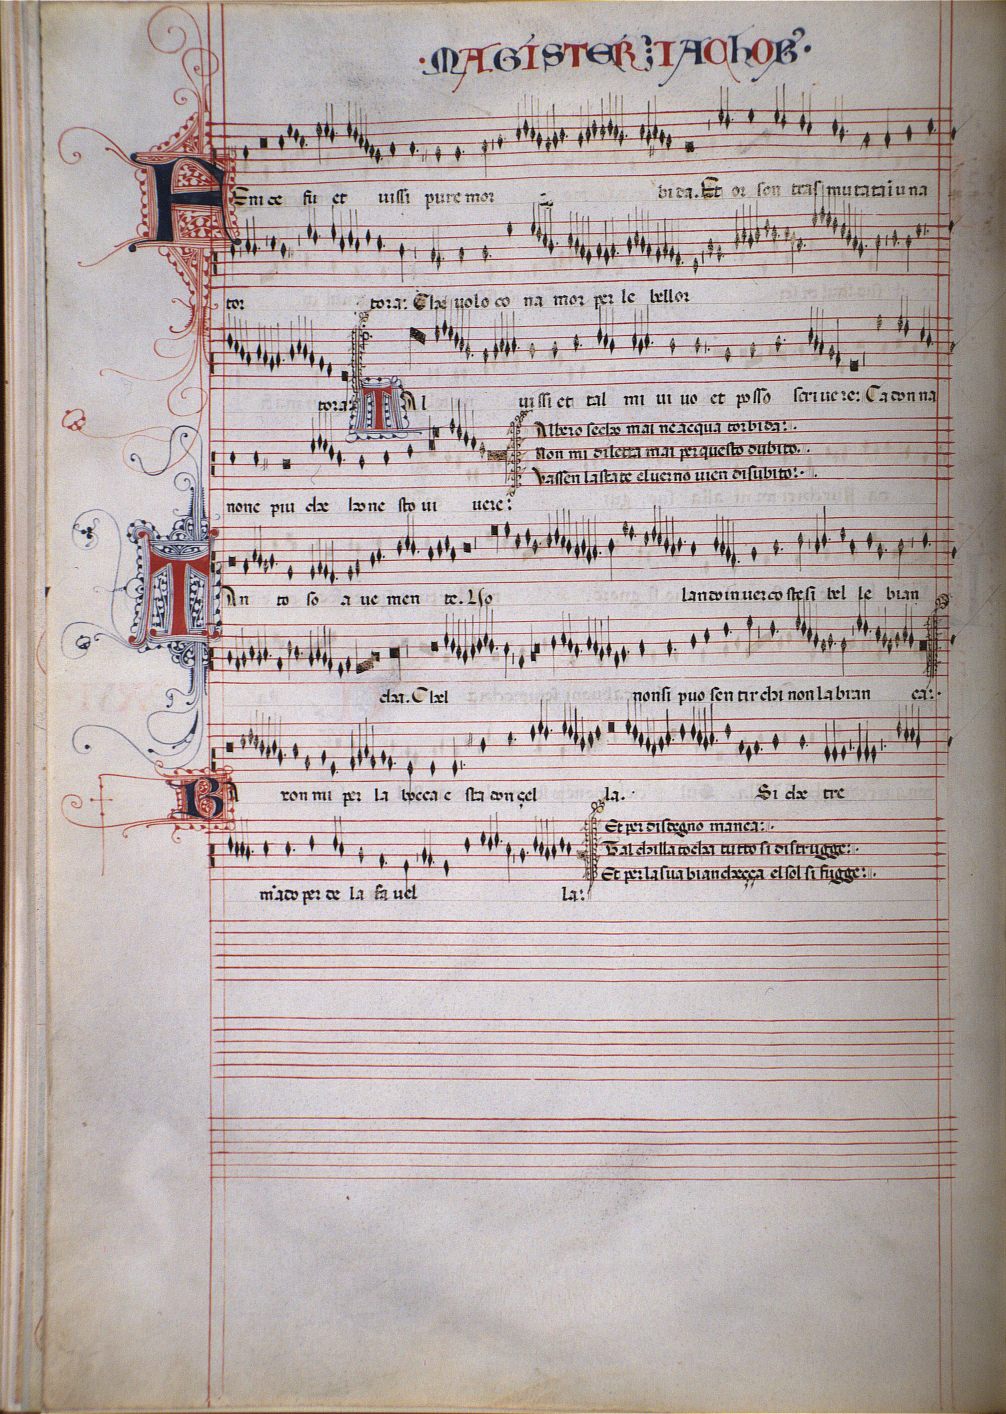 ·MAGISTER: IACHOB'·
FEnice fu et uissi pure mor bida. Et or son trasmutata i una
tor tora: Che uolo co na mor per le bellor
tora: TAl uissi et tal mi uiuo et posso scriuere: Ca don na
Albero secho mai ne acqua torbida:·
Non mi diletta mai per questo dubito.·
Vassen lastate el uerno uien disubito:·
none piu che hone sto ui uere:
TAn to so a ue men te. Lso lando in uer co ste si bel le bian
cha. Chel non si puo sen tir chi non la bian ca:·
BA ron mi per la bocca e sta don çel la. Si che tre
Et per disdegno manca:·
Tal chilla tocha tutto si distrugge:·
Et per la sua biancheçça el sol si fugge:·
mãdo per de la fa uel la: